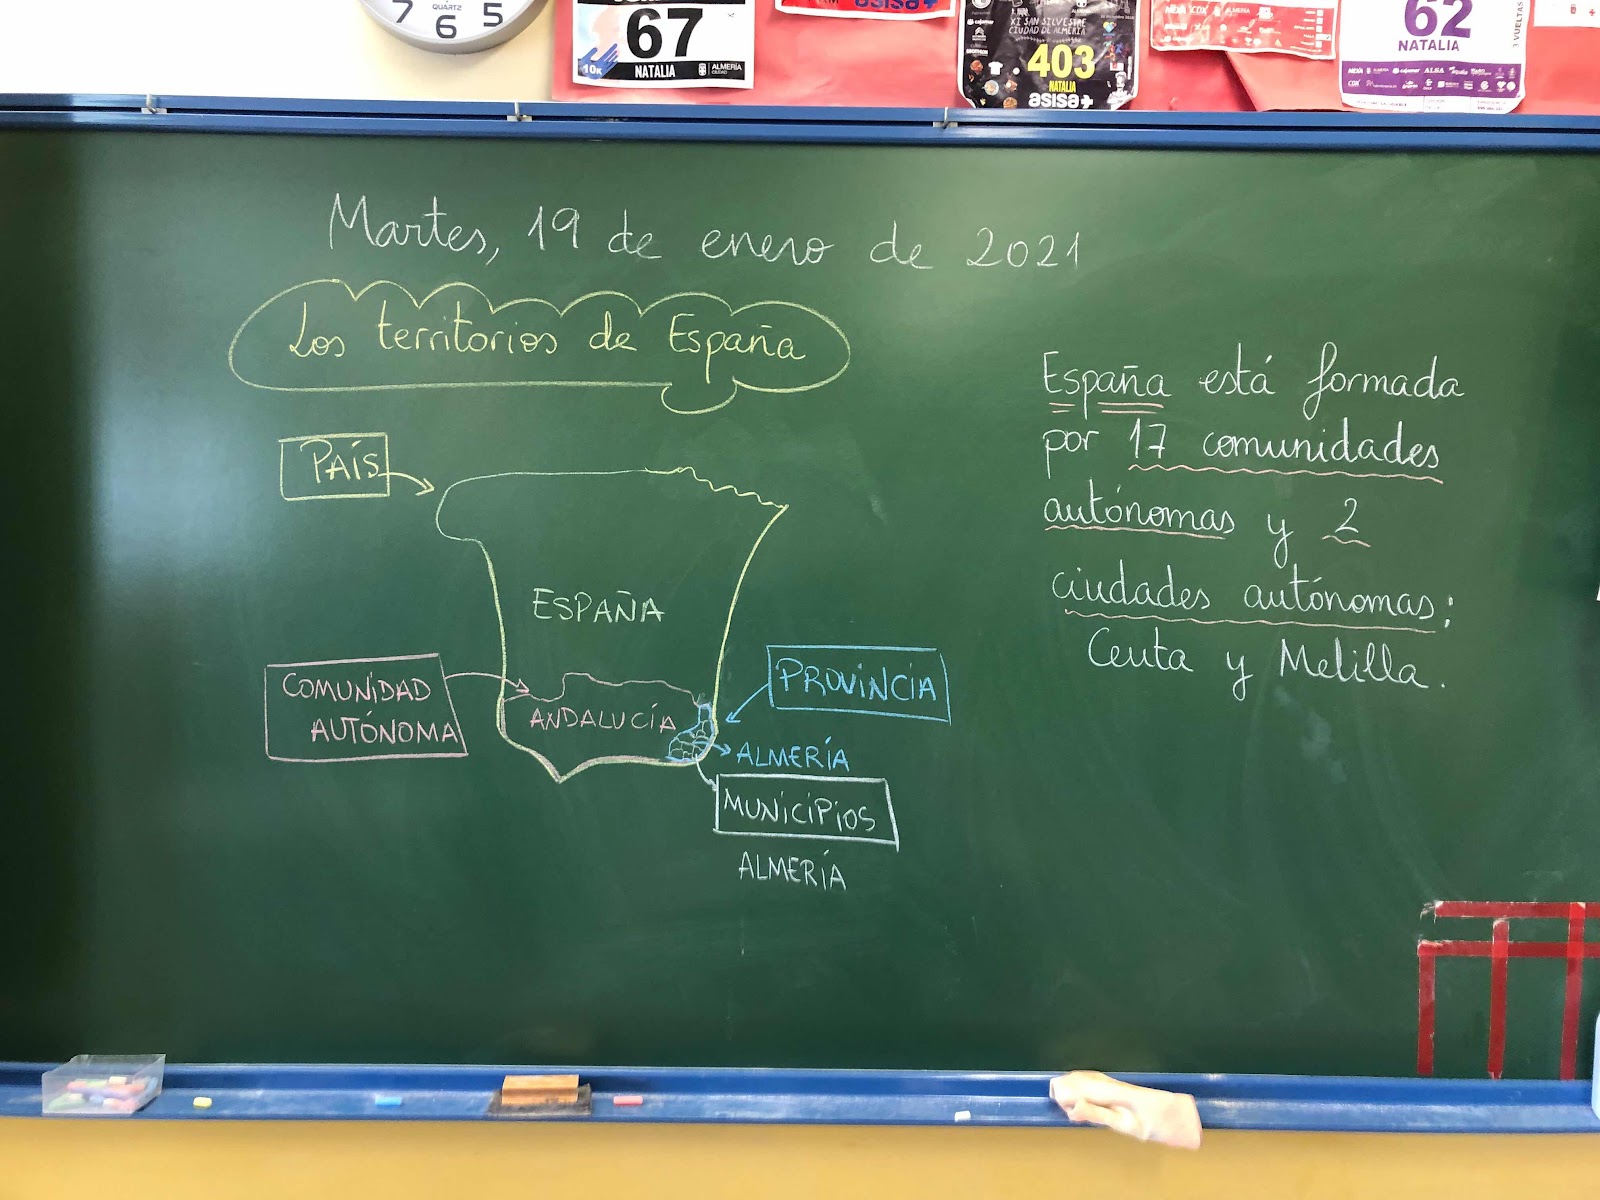 7
6
5
QUARTZ
67
10K
NATALIA
ALMERÍA
CIUDAD
asisa+
XI SAN SILVESTRE
CIUDAD DE ALMERÍA
cajamar
403
NATALIA
asisa+
62
NATALIA
3 VUELTAS
Martes, 19 de enero de 2021
Los territorios de España
PAÍS
ESPAÑA
COMUNIDAD
AUTÓNOMA
ANDALUCÍA
PROVINCIA
ALMERÍA
MUNICIPIOS
ALMERÍA
España está formada
por 17 comunidades
autónomas y 2
ciudades autónomas:
Ceuta y Melilla.